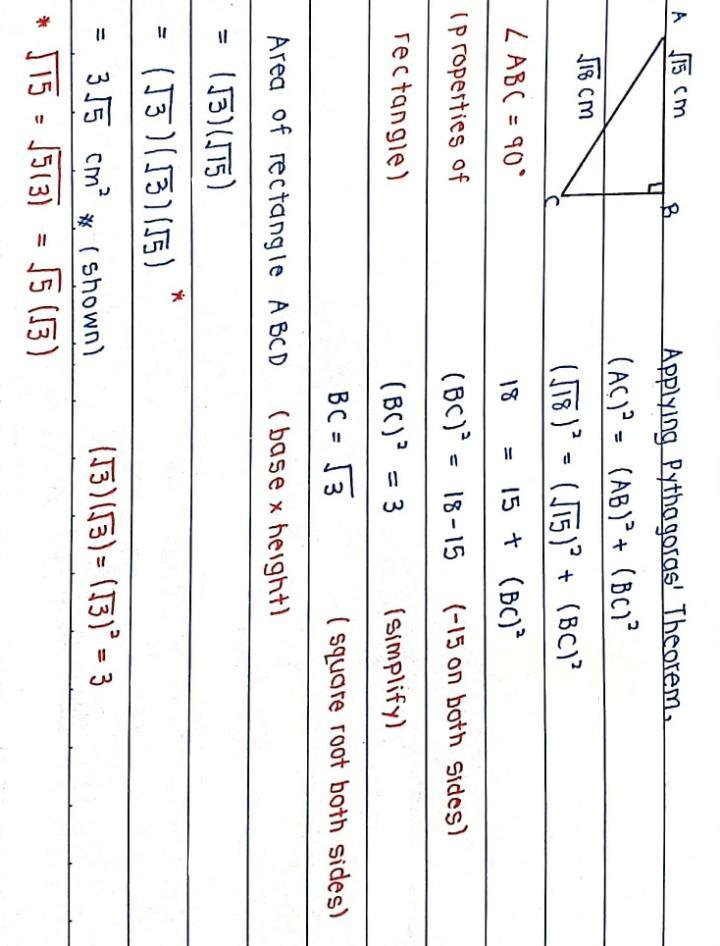 A √15 cm B
√18 cm
C
Applying Pythagoras' Theorem,
(AC)² = (AB)² + (BC)²
(√18)² = (√15)² + (BC)²
∠ABC = 90°
18 = 15 + (BC)²
(properties of
(BC)² = 18-15 (-15 on both sides)
rectangle)
(BC)² = 3 (simplify)
BC = √3 (square root both sides)
Area of rectangle ABCD (base x height)
= (√3)(√15)
= (√3)(√3)(√5) *
= 3√5 cm² * (shown) (√3)(√3) = (√3)² = 3
* √15 = √5(3) = √5 (√3)